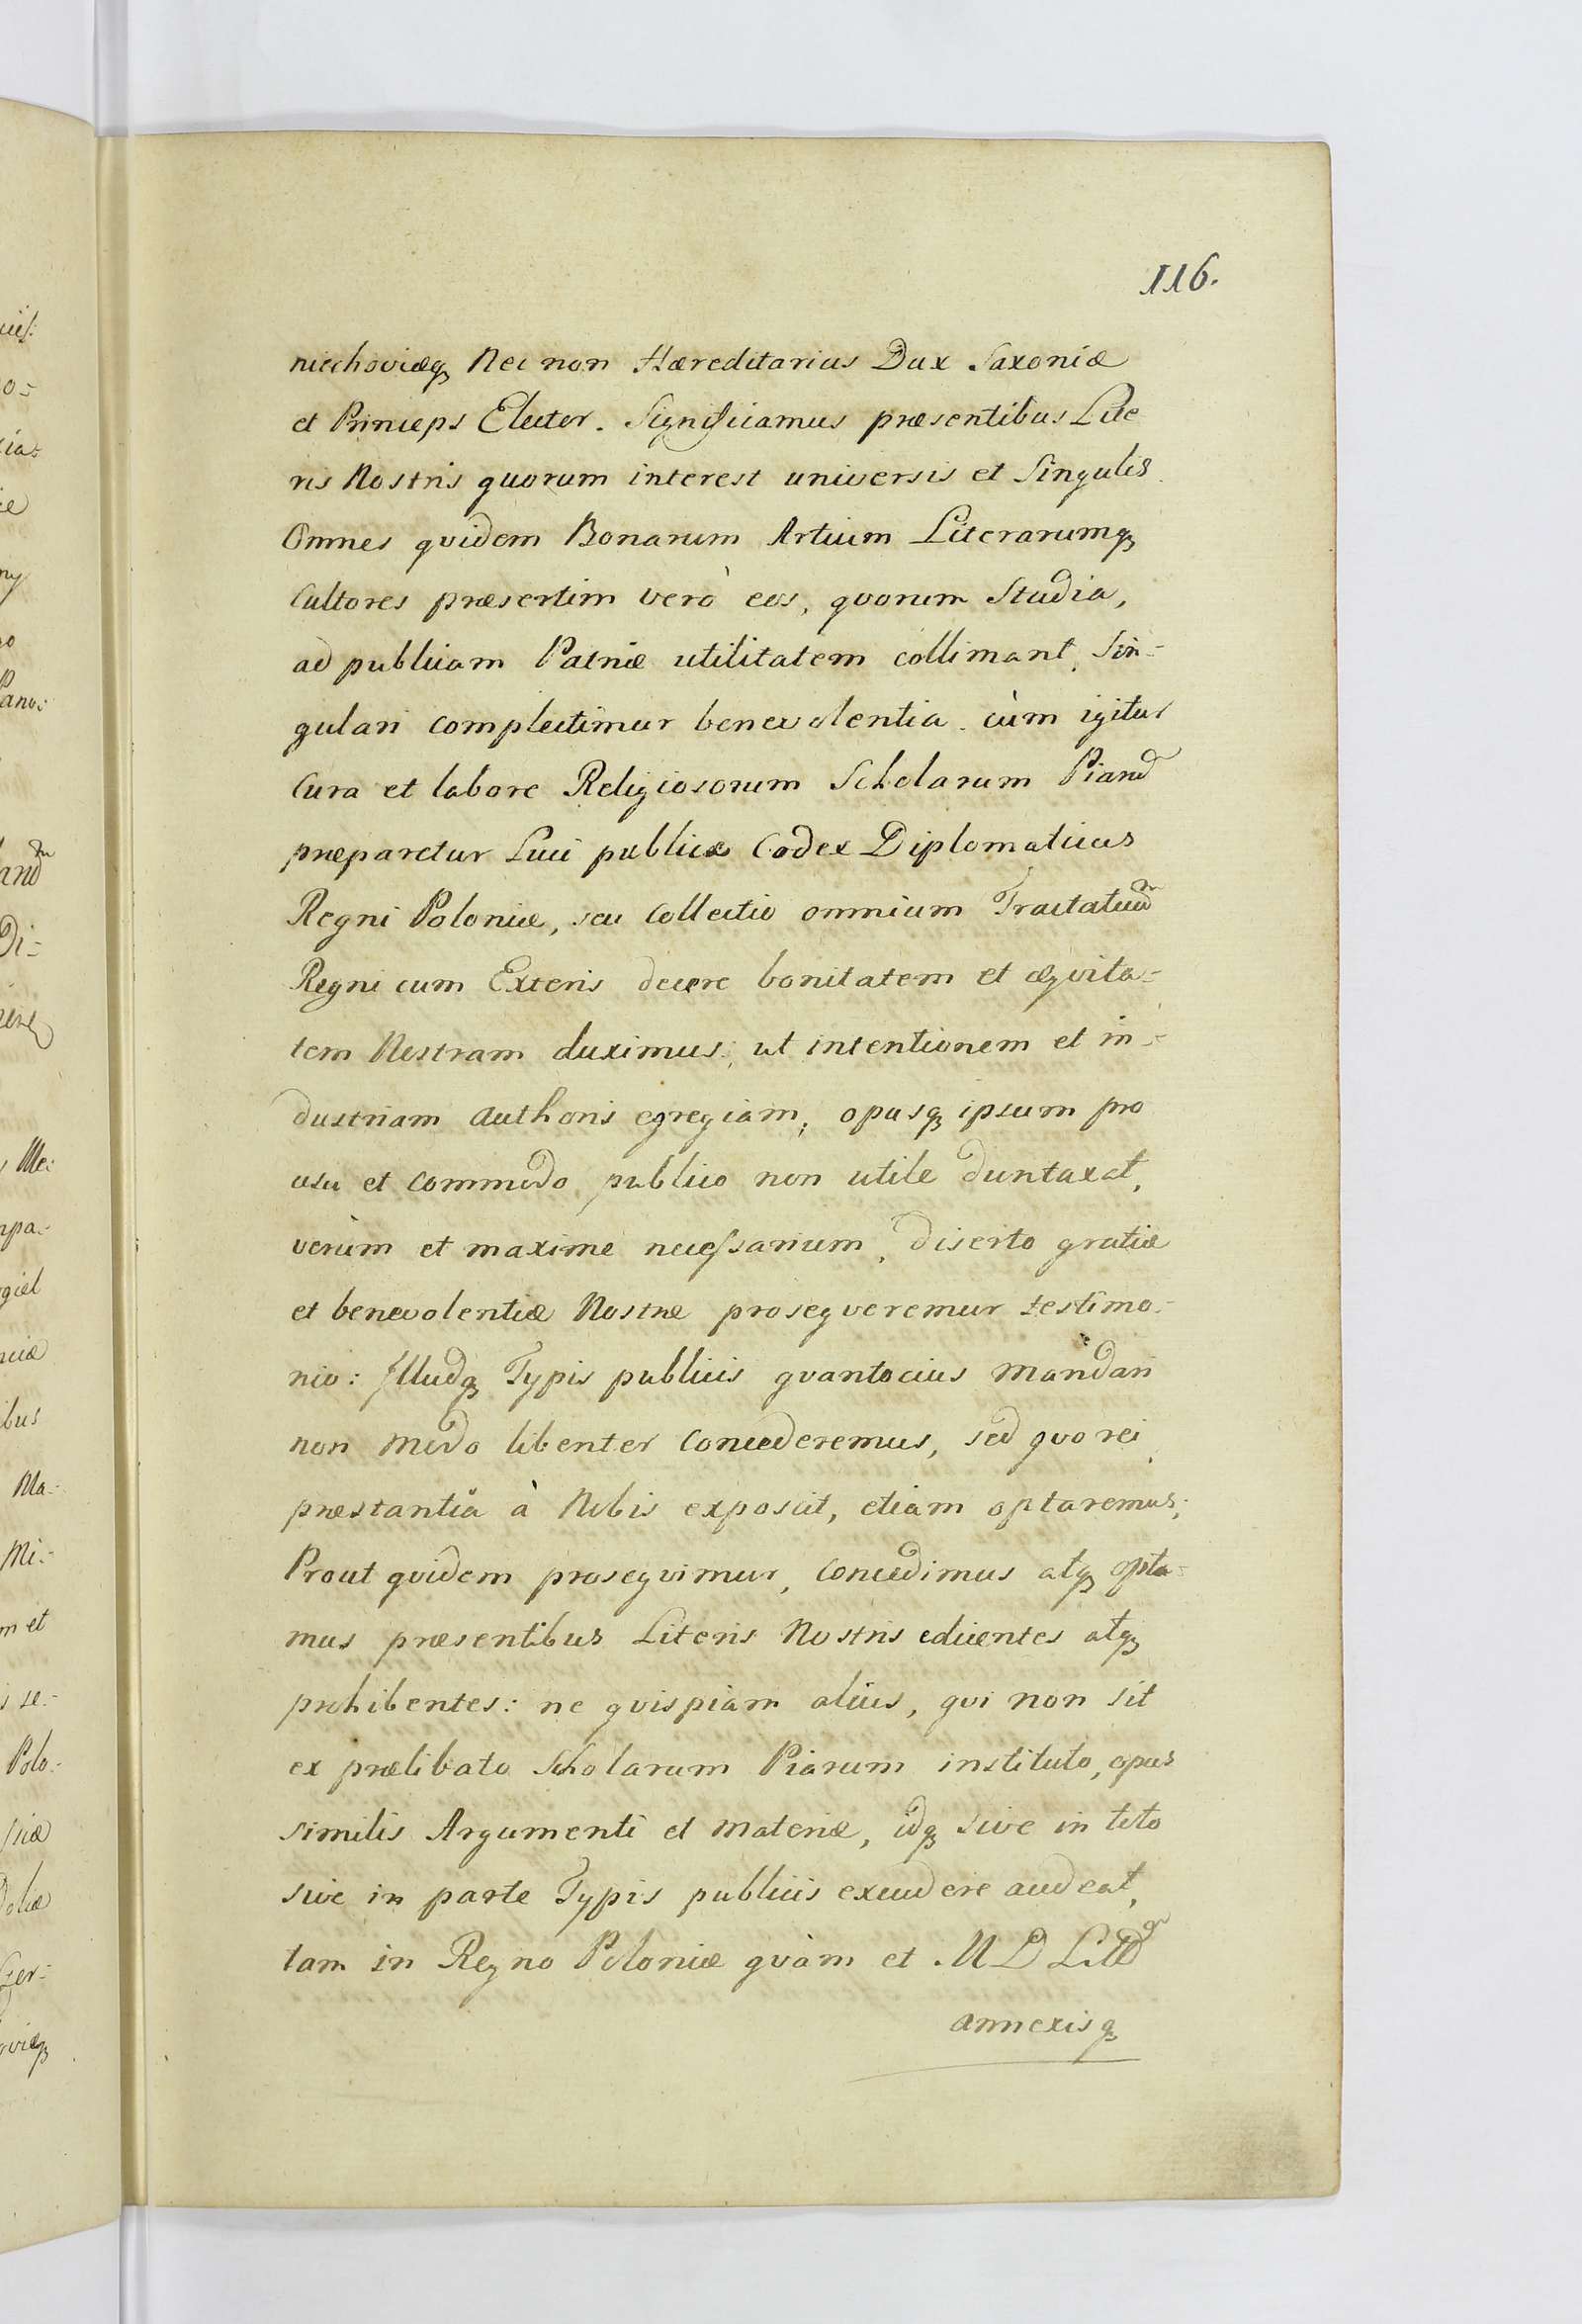 116.
niechoviæq₃ Nec non Hæreditarius Dux Saxoniæ
et Princeps Elector. Significamus præsentibus Lite
ris Nostris quorum interest universis et Singulis.
Omnes qvidem Bonarum Artium Literarumq₃
Cultores præsertim verò eos, qvorum Studia,
ad publicam Patriæ utilitatem collimant, Sin-
gulari complectimur benevolentia. cùm igitur
Cura et labore Religiosorum Scholarum Piarũ
præparetur Luci publicæ Codex Diplomaticus
Regni Poloniæ, seu Collectio omnium Tractatuũ
Regni cum Exteris decere bonitatem et æqvita-
tem Nostram duximus; ut intentionem et in-
dustriam Authoris egregiam; opusq₃ ipsum pro
usu et commodo publico non utile duntaxat,
verùm et maxime necessarium, diserto gratiæ
et benevolentiæ Nostræ proseqveremur testimo-
nio: Illudq₃ Typis publicis qvantocius mandari
non modo libenter Concederemus, sed qvo rei
præstantia à Nobis exposcit, etiam optaremus;
Prout qvidem proseqvimur, Concedimus atq₃ opta-
mus præsentibus Literis Nostris edicentes atq₃
prohibentes: ne qvispiam alius, qvi non sit
ex prælibato Scholarum Piarum instituto, opus
similis Argumenti et materiæ, idq₃ sive in toto
sive in parte Typis publicis excudere audeat,
tam in Regno Poloniæ qvàm et M D Litt
annexisq₃